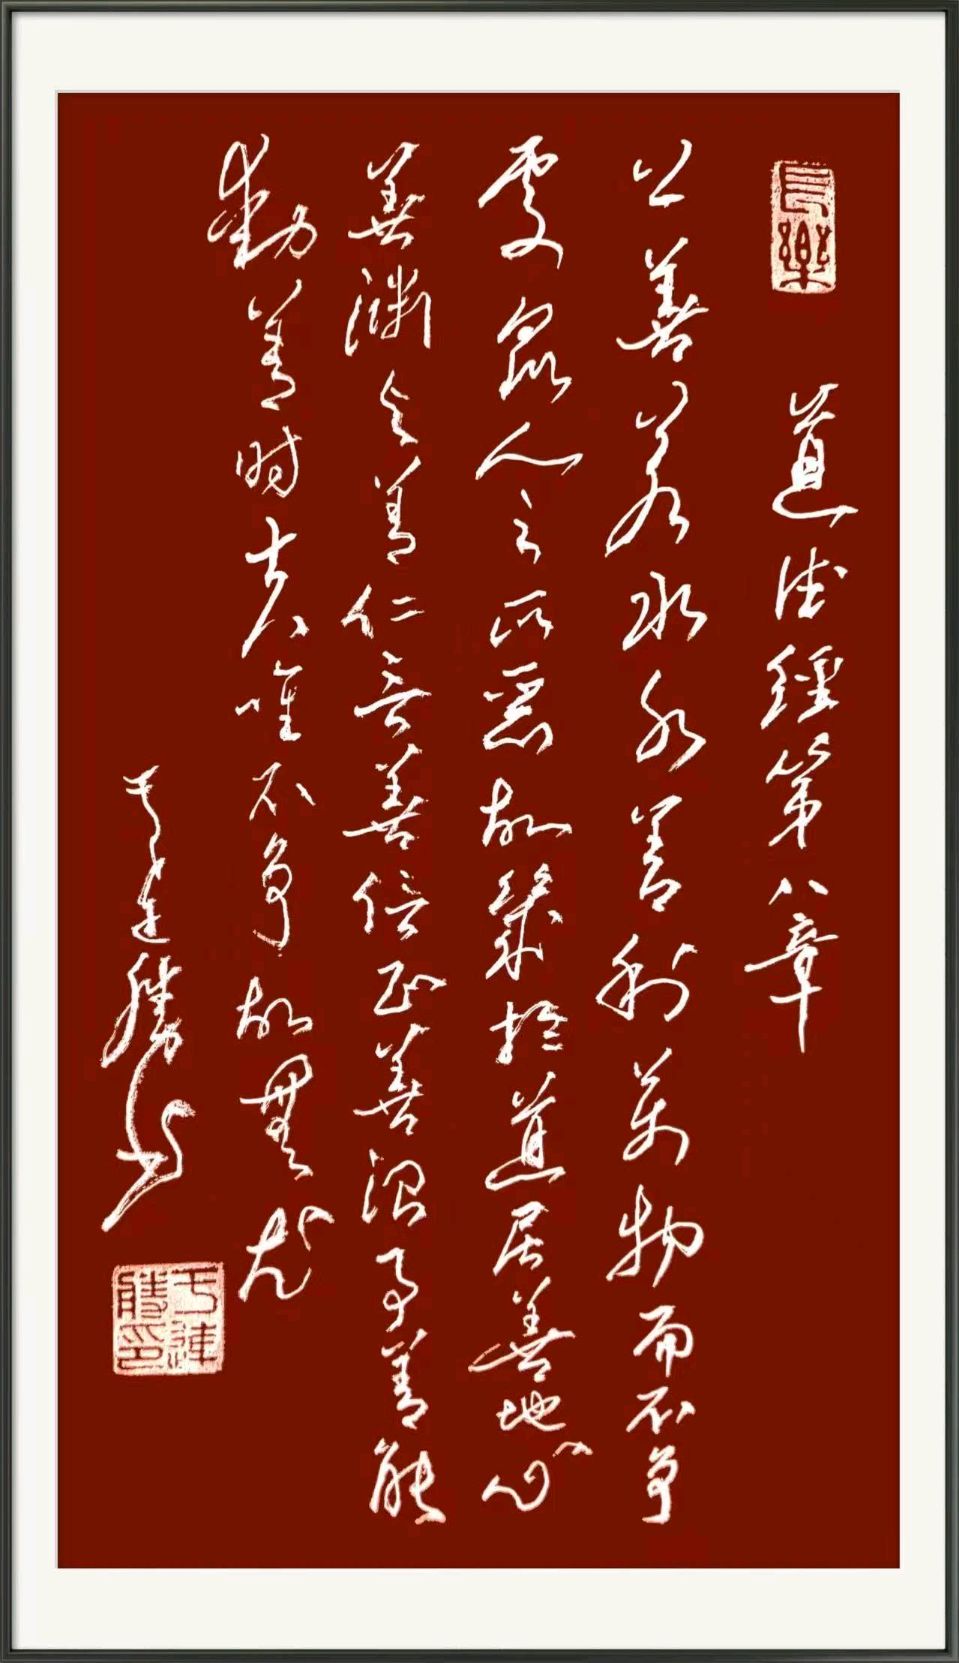 道德經第八章
上善若水水善利萬物而不争
處衆人之所惡故幾於道居善地心
善渊与善仁言善信正善治事善能
動善时夫唯不争故無尤
于连勝书
于連勝印